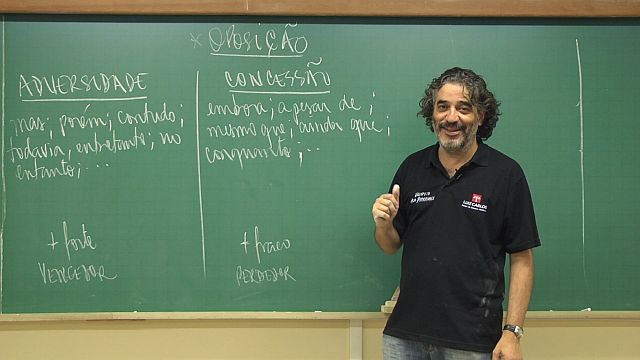 * OPOSIÇÃO
ADVERSIDADE
mas; porém; contudo;
todavia, entretanto; no
entanto; ...
+ forte
VENCEDOR
CONCESSÃO
embora; apesar de;
mesmo que; ainda que;
conquanto; ...
+ fraco
PERDEDOR
LUIS CARLOS